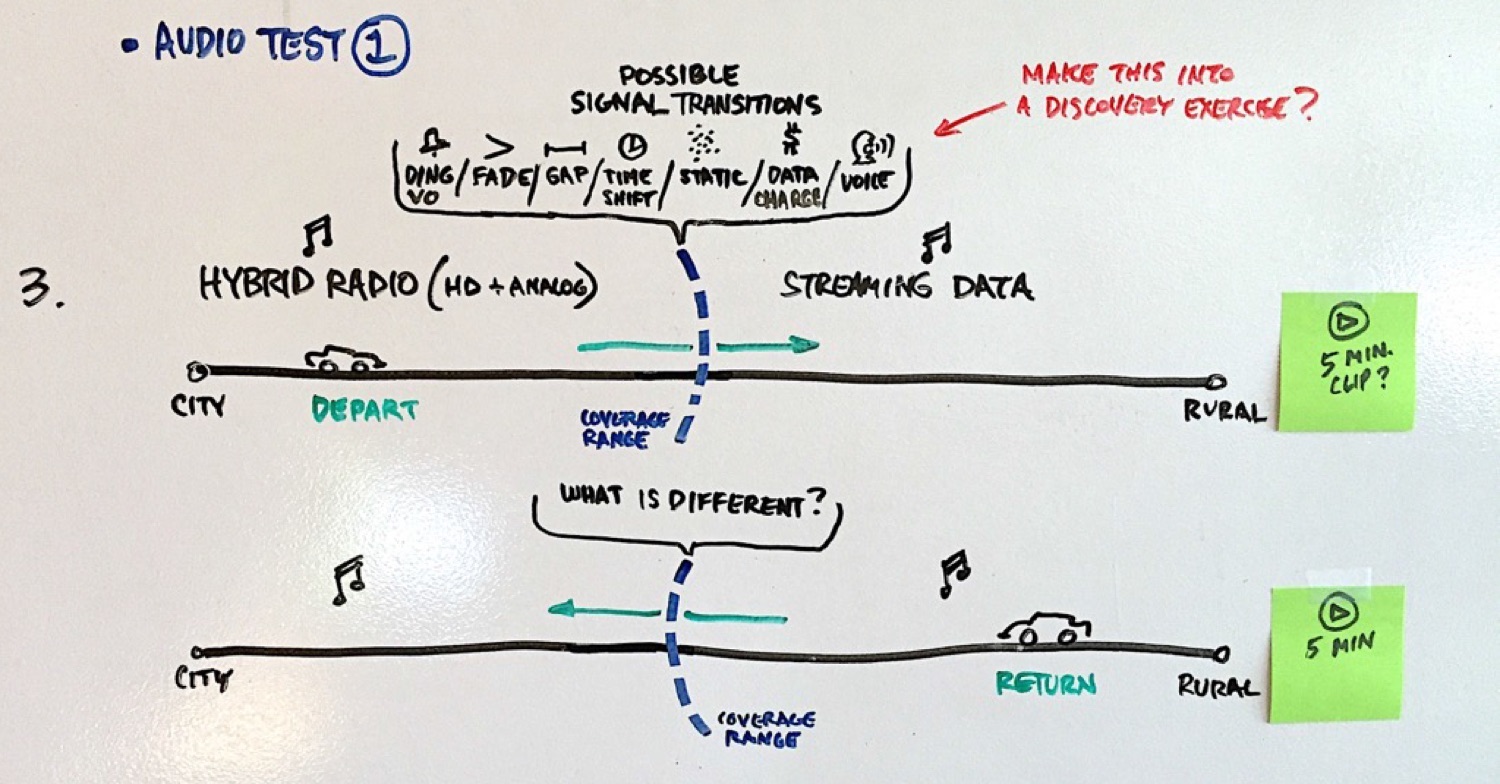 • AUDIO TEST 1
POSSIBLE
SIGNAL TRANSITIONS
MAKE THIS INTO
A DISCOVERY EXERCISE?
DING / FADE / GAP / TIME / STATIC / DATA / VOICE
VO SHIFT CHARGE
3.
HYBRID RADIO (HD + ANALOG)
STREAMING DATA
5 MIN.
CLIP?
CITY
DEPART
COVERAGE
RANGE
RURAL
WHAT IS DIFFERENT?
5 MIN
CITY
RETURN
RURAL
COVERAGE
RANGE